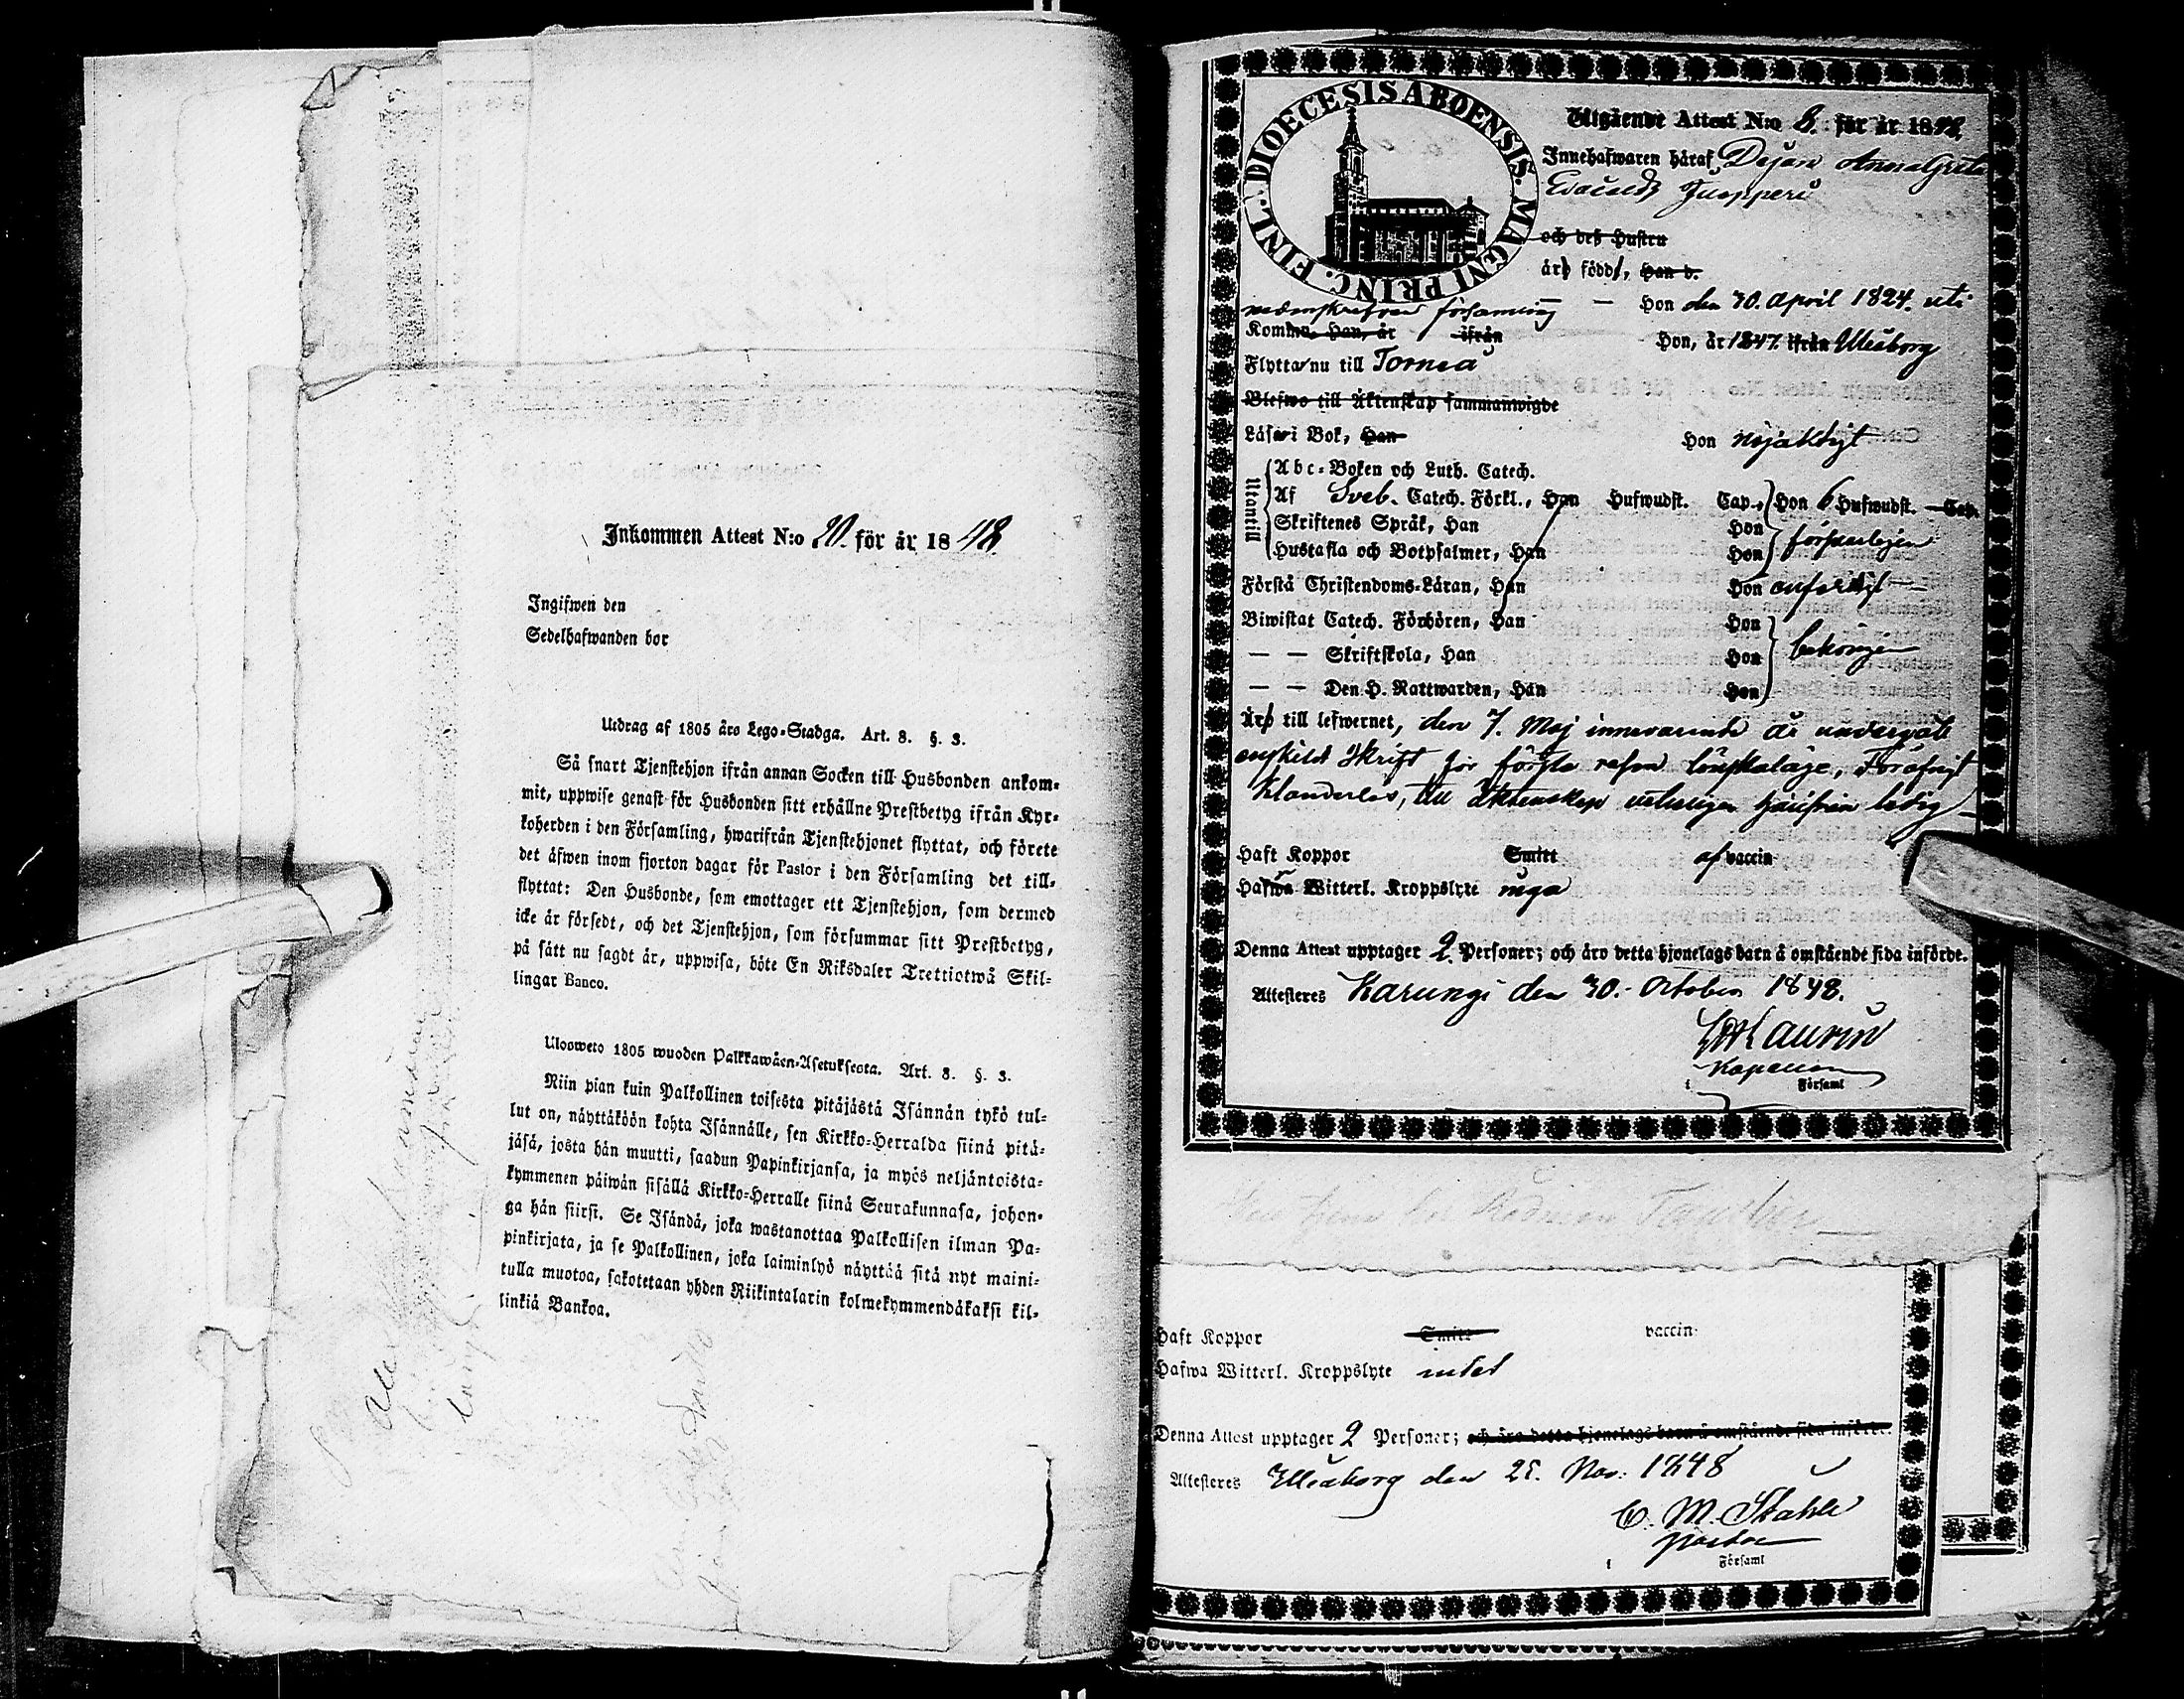 Inkommen Attest N:o 20. för år 1848.
Ingifwen den
Sedelhafwanden bor
Utdrag af 1805 års Lego-Stadga. Art. 8. §. 3.
Så snart Tjenstehjon ifrån annan Socken till Husbonden ankom-
mit, uppwise genast för Husbonden sitt erhållne Prestbetyg ifrån Kyr-
koherden i den Församling, hwarifrån Tjenstehjonet flyttat, och förete
det äfwen inom fjorton dagar för Pastor i den Församling det till-
flyttat: Den Husbonde, som emottager ett Tjenstehjon, som dermed
icke är försedt, och det Tjenstehjon, som försummar sitt Prestbetyg,
på sätt nu sagdt är, uppwisa, böte En Riksdaler Trettiotwå Skil-
lingar Banco.
Ulosweto 1805 wuoden Palkkawäen-Asetuksesta. Art. 8. §. 3.
Niin pian kuin Palkollinen toisesta pitäjästä Isännän tykö tul-
lut on, näyttäköön kohta Isännälle, sen Kirkko-Herralda siinä pitä-
jäsä, josta hän muutti, saadun Papinkirjansa, ja myös neljäntoista-
kymmenen päiwän sisällä Kirkko-Herralle siinä Seurakunnasa, johon-
ga hän siirsi. Se Isändä, joka wastanottaa Palkollisen ilman Pa-
pinkirjata, ja se Palkollinen, joka laiminlyö näyttää sitä nyt maini-
tulla muotoa, sakotetaan yhden Riikintalarin kolmekymmendäkaksi kil-
linkiä Bankoa.
FINL. DIOECESIS ABOENSIS. MAGNI PRINC.
Utgående Attest N:o 8. för år 1848.
Innehafwaren häraf Dejan Anna Greta
och deß Hustru
äro född, Han d.
församling — Hon den 30. April 1824. uti
Komm. Han, år ifrån Hon, år 1847. ifrån Uleåborg
Flytta nu till Torneå
Blefwo till Äktenskap sammanwigde
Läser i Bok, Han Hon nöjaktigt
Utantill
Abc-Boken och Luth. Catech.
Af Sveb. Catech. Förkl., Han Hufwudst. Cap., Hon 6 Hufwudst. — Cap.
Skriftenes Språk, Han Hon
Hustafla och Botpsalmer, Han Hon försvarligen
Förstå Christendoms-Läran, Han Hon enfaldigt —
Biwistat Catech. Förhören, Han Hon
— — Skriftskola, Han Hon behörigen
— — Den H. Nattwarden, Han Hon
Äro till lefwernet, den 7. Maj innevarande år undergått
enskild Skrift för första resan lönskaläge, För öfrigt
klanderlös, till Äktenskap ledig —
Haft Koppor Smitt af vaccin
Hafwa Witterl. Kroppslyte inga
Denna Attest upptager 2. Personer; och äro detta hjonelags barn å omstående sida införde.
Attesteres Karungi den 30. October 1848.
Laurin
Kapellan
i Församl
Haft Koppor Smitt vaccin
Hafwa Witterl. Kroppslyte intet
Denna Attest upptager 2 Personer; och äro detta hjonelags barn å omstående sida införde.
Attesteres Uleåborg den 25. Nov. 1848
C. M. Stahle
Pastor
i Församl